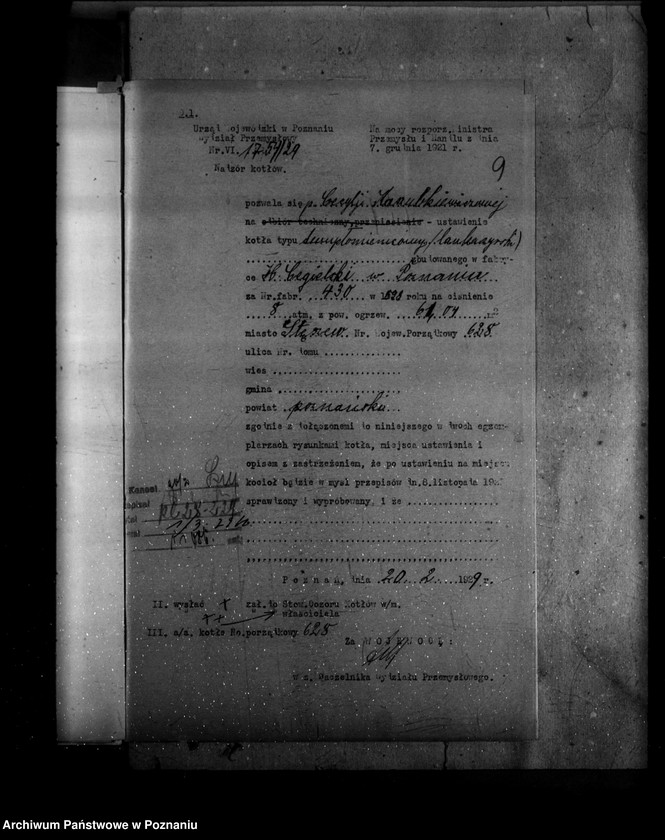 Urząd Wojewódzki w Poznaniu
Wydział Przemysłowy
Nr.VI. 29
Nadzór kotłów.
Na mocy rozporz. Ministra
Przemysłu i Handlu z dnia
7. grudnia 1921 r.
9
pozwala się p.
na odbiór techniczny, przepisanie - ustawienie
kotła typu
zbudowanego w fabry-
ce H. Cegielski w Poznaniu
za Nr.fabr. 430 w roku na ciśnienie
8 atm. z pow. ogrzew. 61,04 m2
miasto Stęszew. Nr. Wojew.Porządkowy 628
ulica Nr. domu
wieś
gmina
powiat poznański
zgodnie z dołączonemi do niniejszego w dwóch egzem-
plarzach rysunkami kotła, miejsca ustawienia i
opisem z zastrzeżeniem, że po ustawieniu na miejscu
kocioł będzie w myśl przepisów dn.8.listopada
sprawdzony i wypróbowany, i że
Poznań, dnia 20. 2. 1929 r.
II. wysłać zał. do Stow.Dozoru Kotłów w/m.
właściciela
III. a/a. kotła No.porządkowy 628
Za WOJEWODĘ:
w z. Naczelnika Wydziału Przemysłowego.
Archiwum Państwowe w Poznaniu